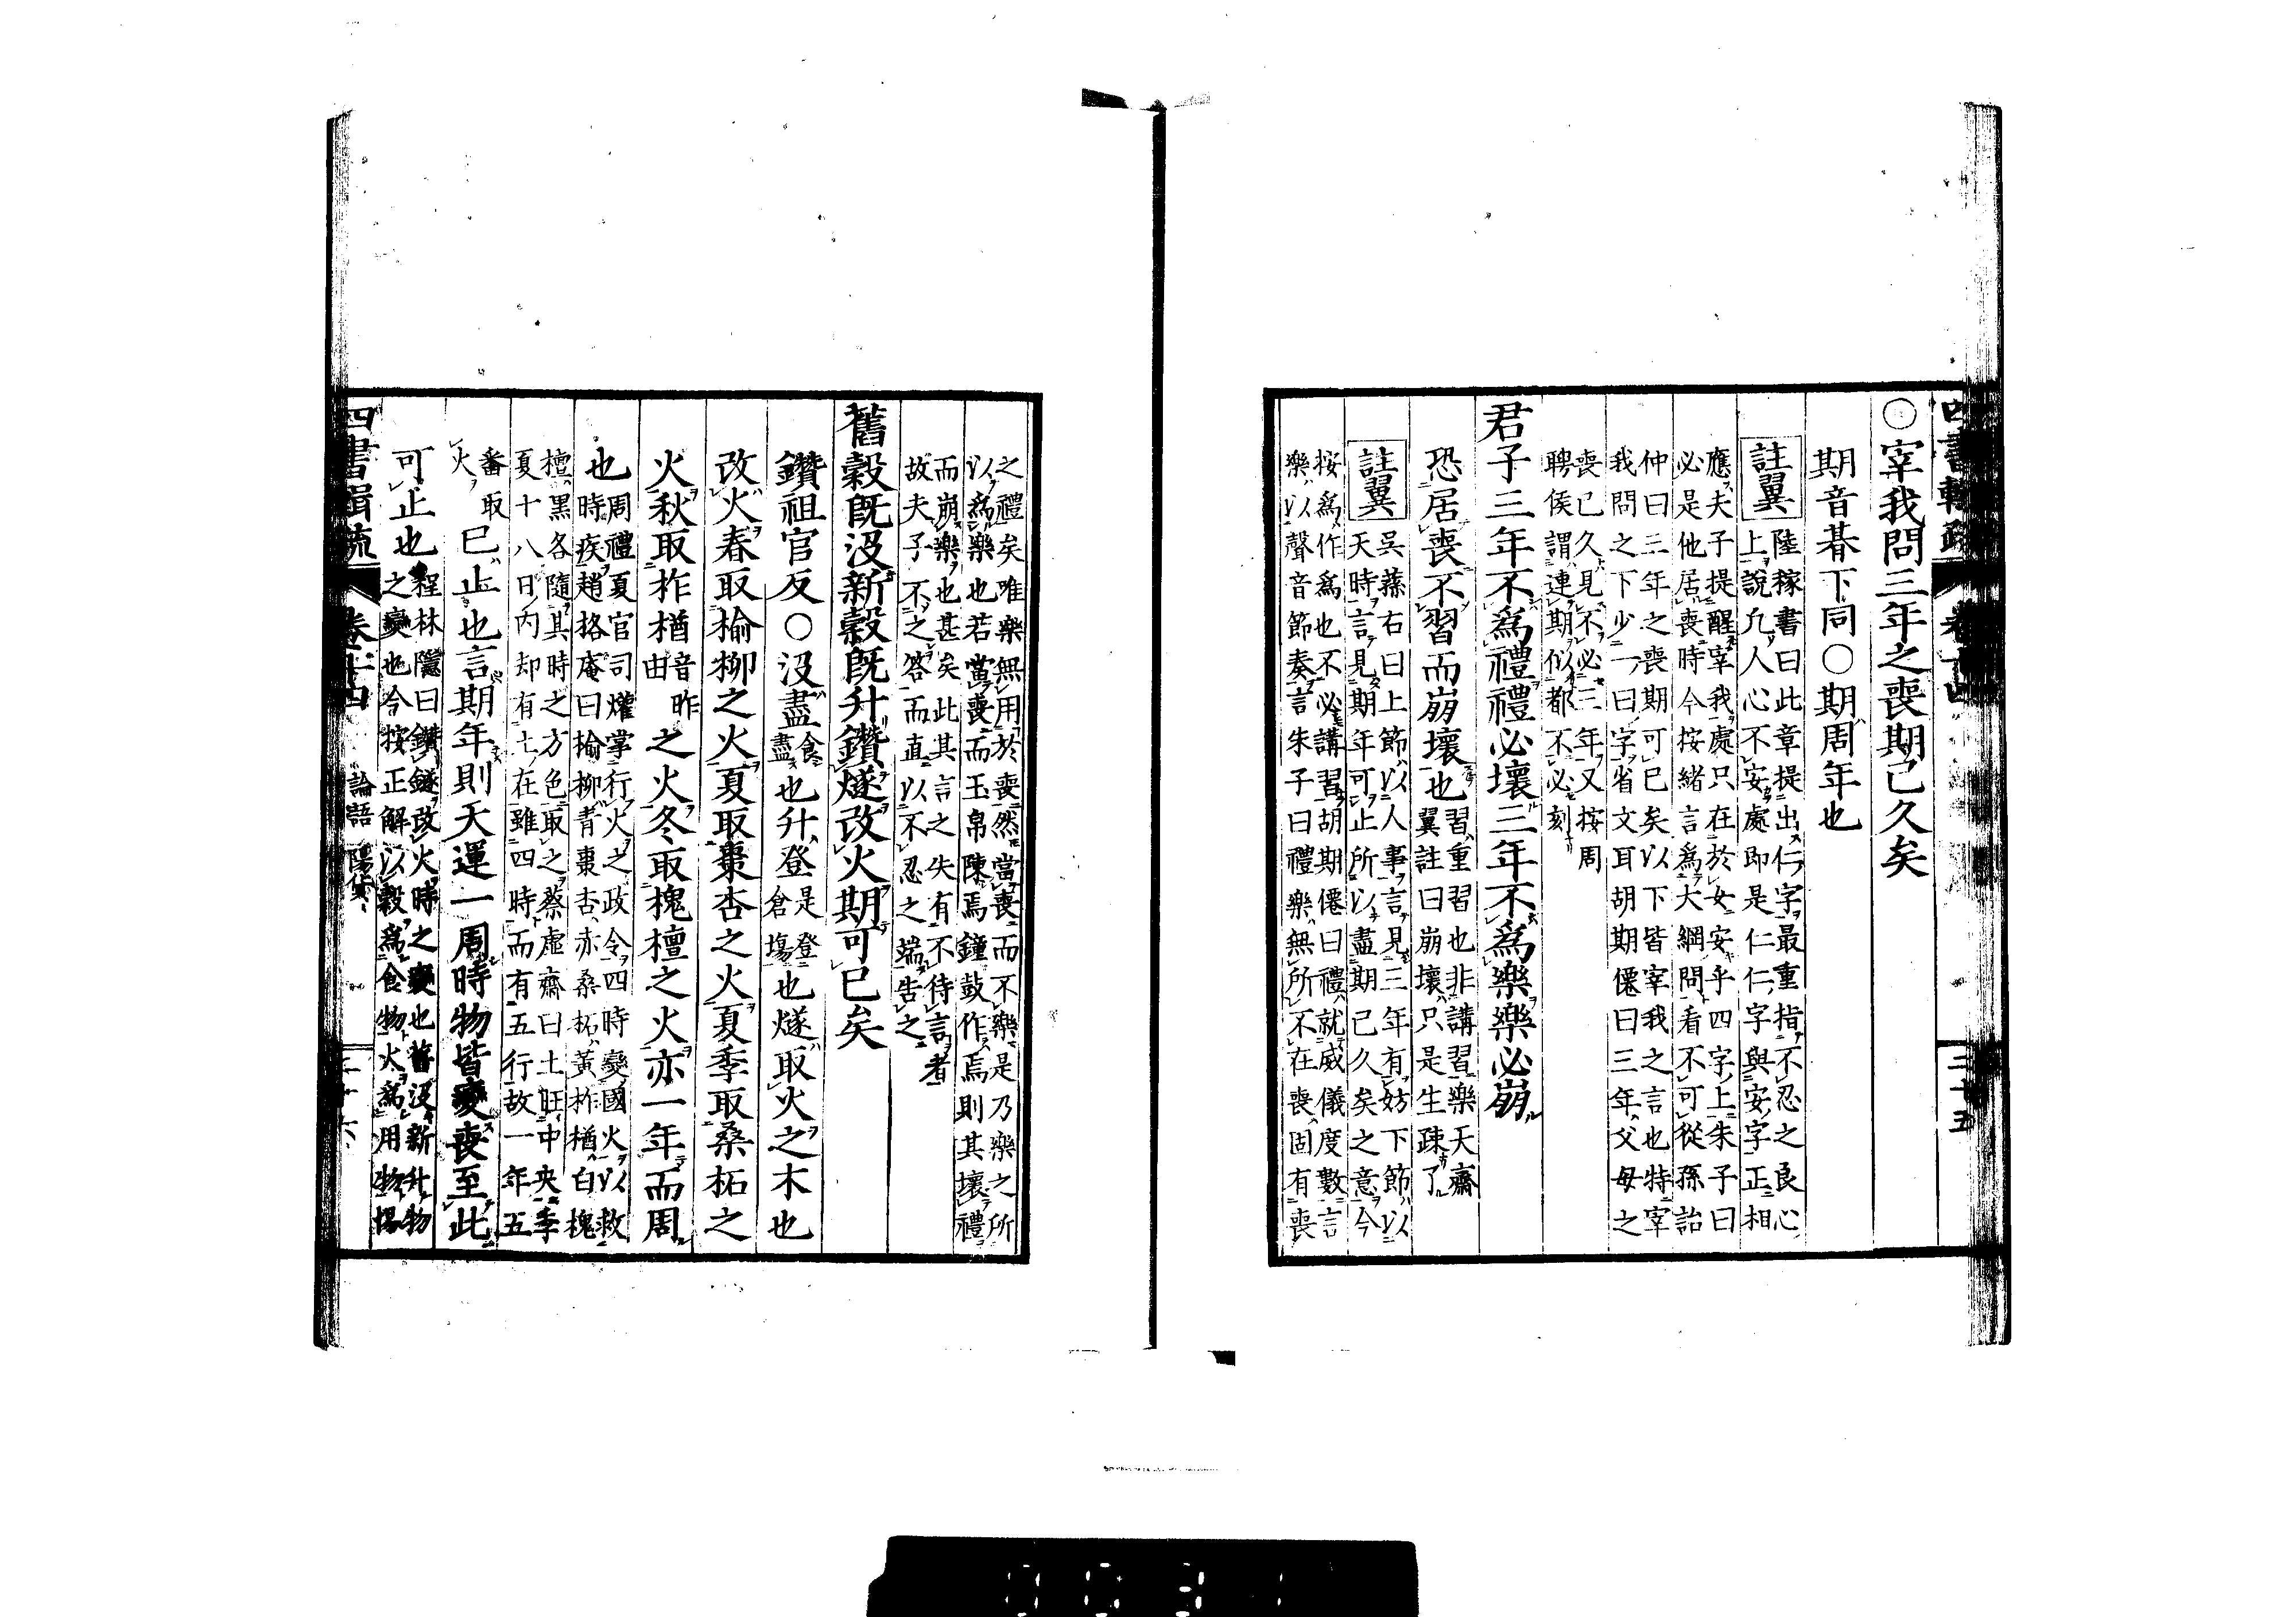 四書輯疏 卷十四 二十五
○宰我問三年之喪期已久矣
期音朞下同○期周年也
註翼 陸稼書曰此章提出仁字最重指不忍之良心
上說凡人心不安處即是仁仁字與安字正相
應夫子提醒宰我處只在於女安乎四字上朱子曰
必是他居喪時今按緒言爲大綱問看不可從孫詒
仲曰三年之喪期可已矣以下皆宰我之言也特宰
我問之下少一曰字省文耳胡期僊曰三年父母之
喪已久見不必三年又按周
聘侯謂連期似都不必刻
君子三年不爲禮禮必壞三年不爲樂樂必崩
恐居喪不習而崩壞也 習重習也非講習樂天齋
翼註曰崩壞只是生疎了
註翼 吳蓀右曰上節以人事言見三年有妨下節以
天時言見期年可止所以盡期已久矣之意今
按爲作爲也不必講習胡期僊曰禮就威儀度數言
樂以聲音節奏言朱子曰禮樂無所不在喪固有喪
之禮矣唯樂無用於喪然當喪而不樂是乃樂之所
以爲樂也若當喪而玉帛陳焉鐘鼓作焉則其壞禮
而崩樂也甚矣此其言之失有不待言者
故夫子不之答而直以不忍之端告之
舊穀既沒新穀既升鑽燧改火期可已矣
鑽祖官反○沒盡 食盡 也升登 是登倉塲 也燧取火之木也
改火春取榆柳之火夏取棗杏之火夏季取桑柘之
火秋取柞楢 音昨由 之火冬取槐檀之火亦一年而周
也 周禮夏官司爟掌行火之政令四時變國火以救
時疾趙格庵曰榆柳青棗杏赤桑柘黃柞楢白槐
檀黑各隨其時之方色取之蔡虛齋曰土旺中央季
夏十八日內却有土在雖四時而有五行故一年五
番取火 已止也言期年則天運一周時物皆變喪至此
可止也 程林隱曰鑽鐩改火時之變也舊沒新升物
之變也今按正解以穀爲食物火爲用物
四書輯疏 卷十四 論語 陽貨 二十六